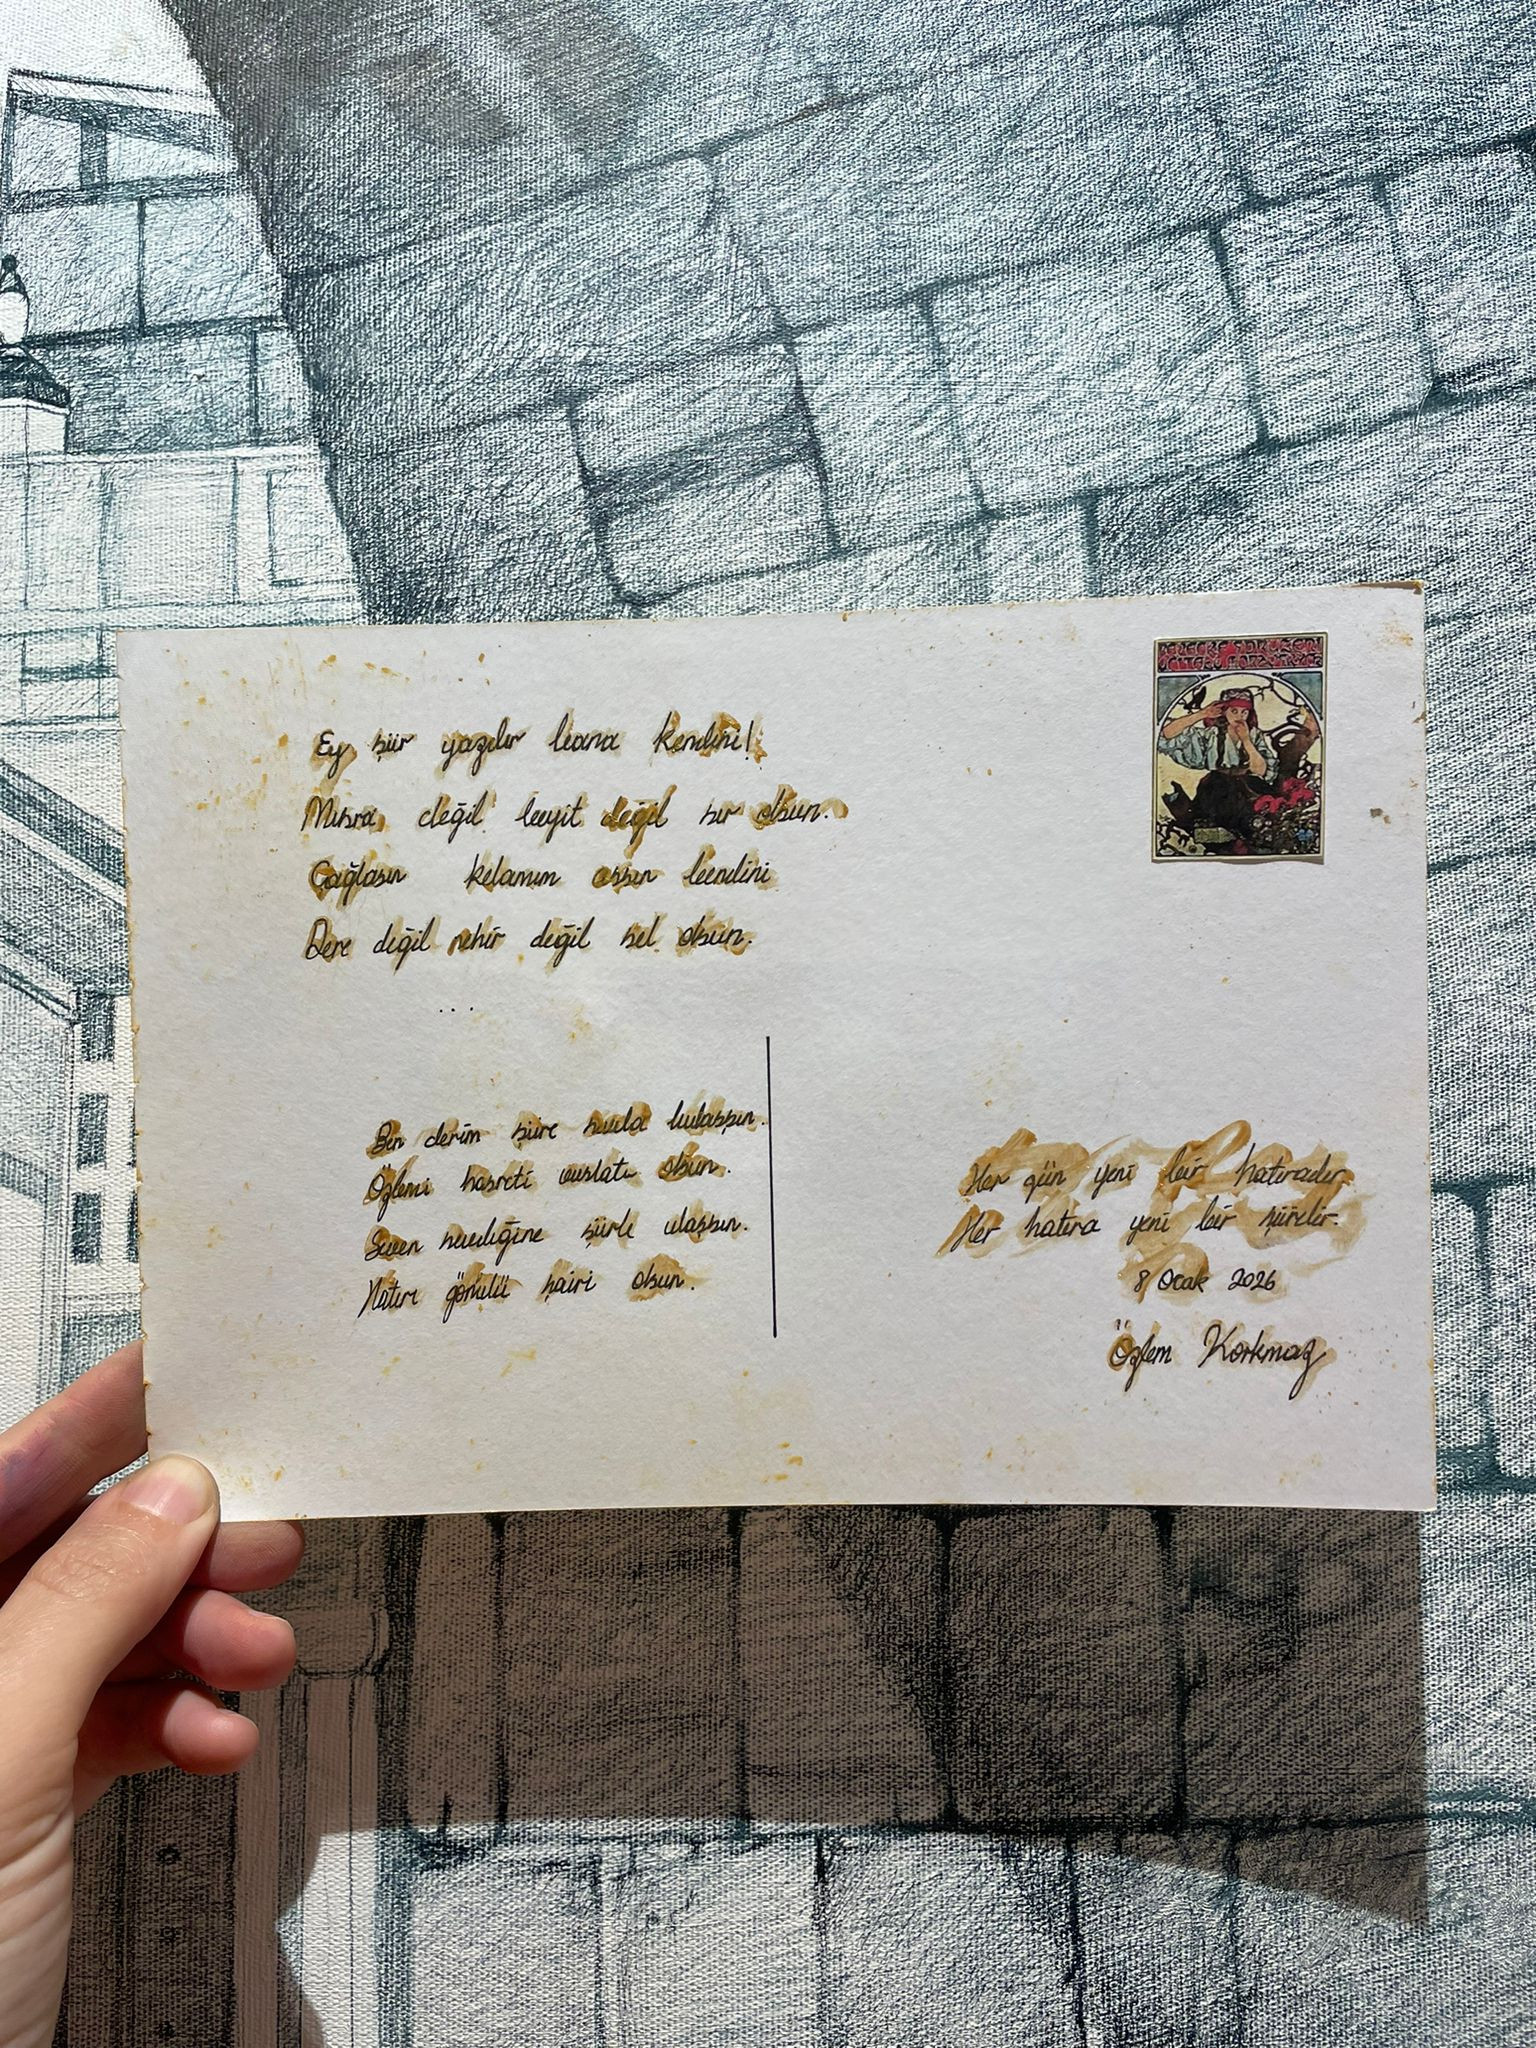 Ey şiir yazdır bana kendini!
Mısra değil beyit değil sır olsun.
Çağlasın kelamım assın bendini
Dere değil nehir değil sel olsun.
...
Ben derim şiire sevda bulaşsın.
Özlemi hasreti vuslatı olsun.
Seven sevdiğine şiirle ulaşsın.
Hatırı gönülü şairi olsun.
Her gün yeni bir hatıradır.
Her hatıra yeni bir şiirdir.
8 Ocak 2026
Özlem Korkmaz